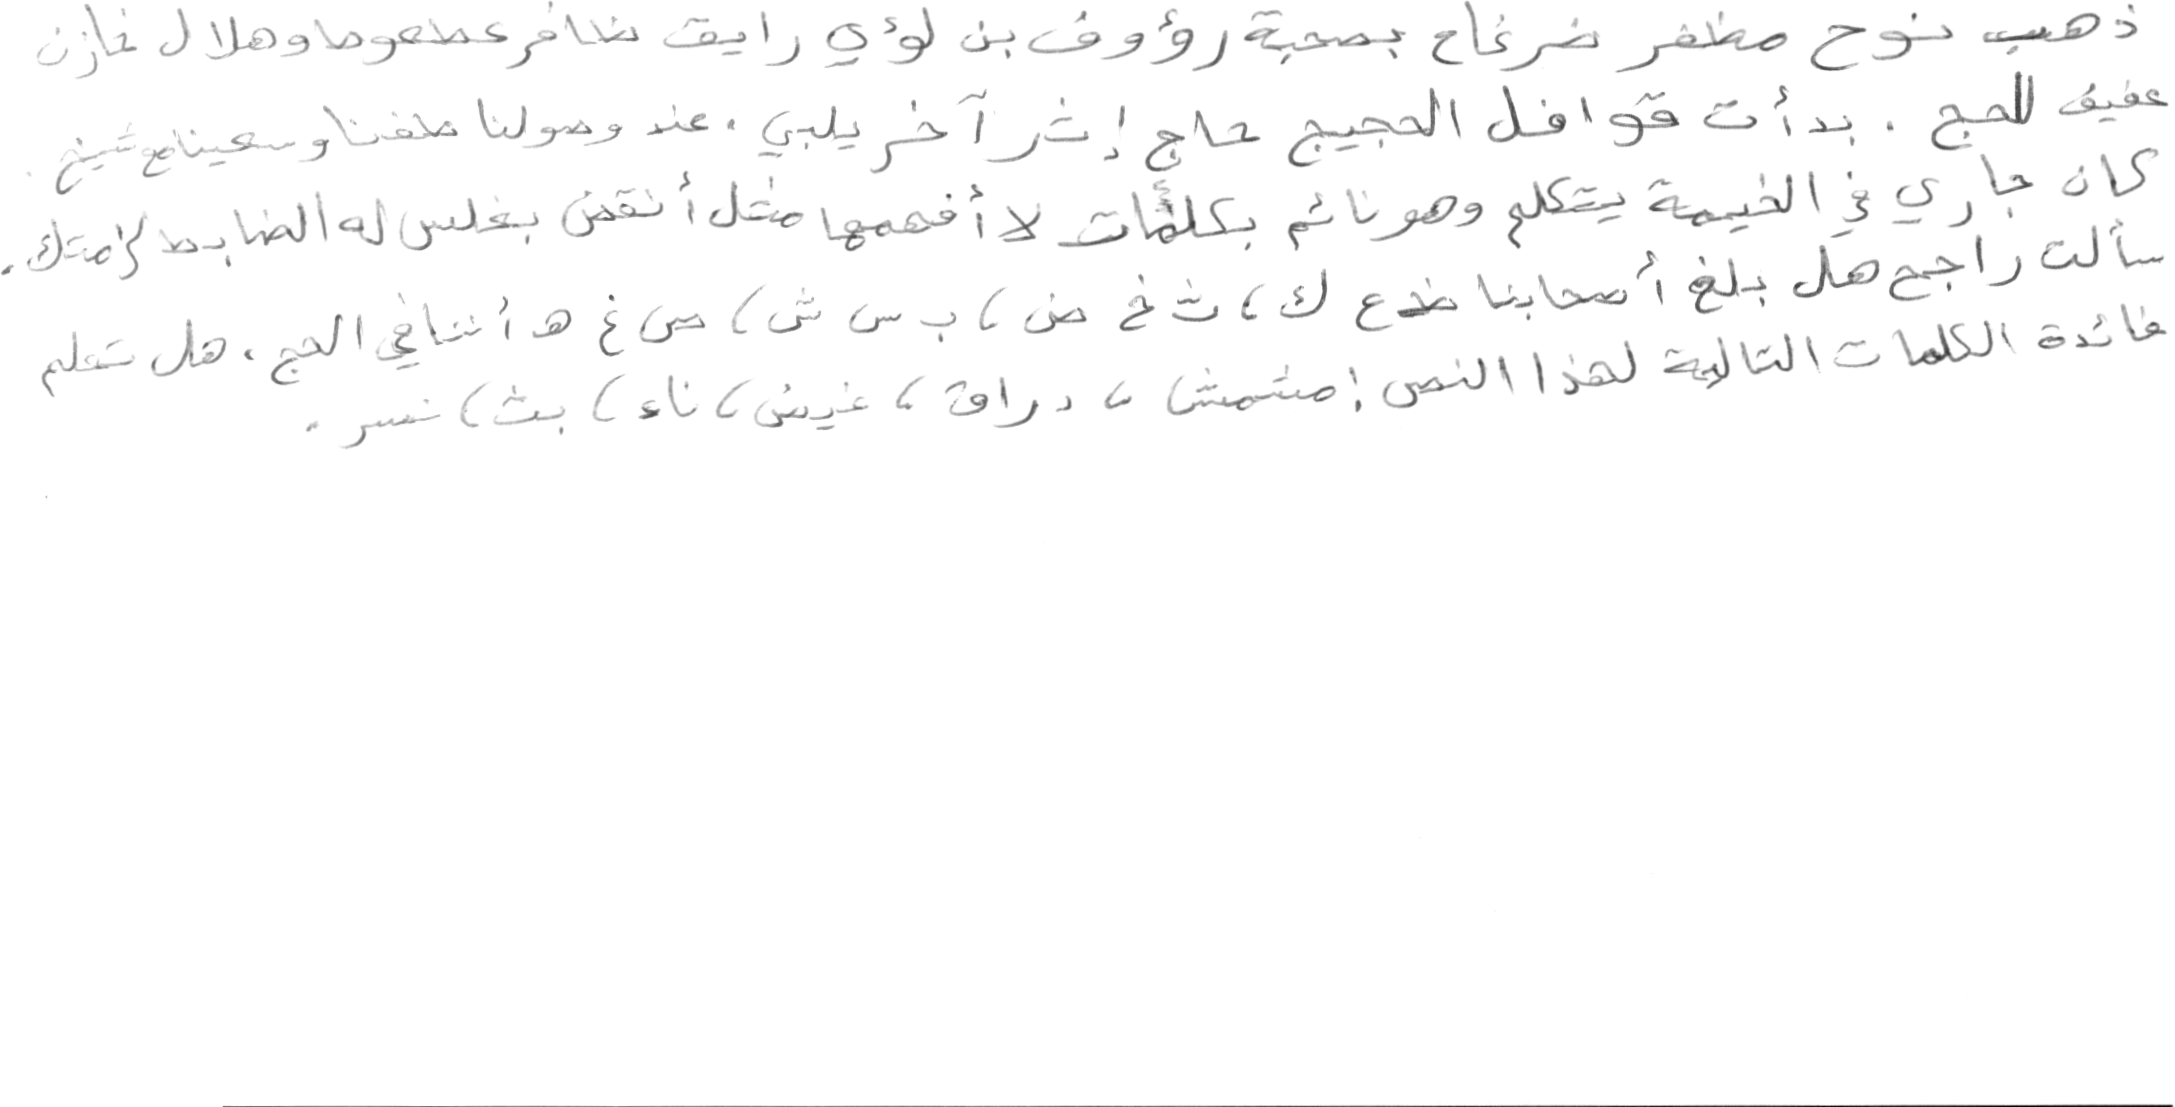 ذهب نوح مظفر ضرغام بصحبة رؤوف بن لؤي رايق ظافر عطعوط وهلال غازن
عفيف للحج . بدأت قوافل الحجيج حاج إثر آخر يلبي . عند وصولنا طفنا وسعينا مع شيخ .
كان جاري في الخيمة يتكلم وهو نائم بكلمات لا أفهمها مثل أنقض بغلس له الضابط كزمتك .
سألت راجح هل بلغ أصحابنا ضدع ك ، ث خ ض ، ب س ش ، ص غ ه أننا في الحج . هل تعلم
فائدة الكلمات التالية لهذا النص : مشمش ، دراق ، غيض ، ناء ، بث ، نسر .